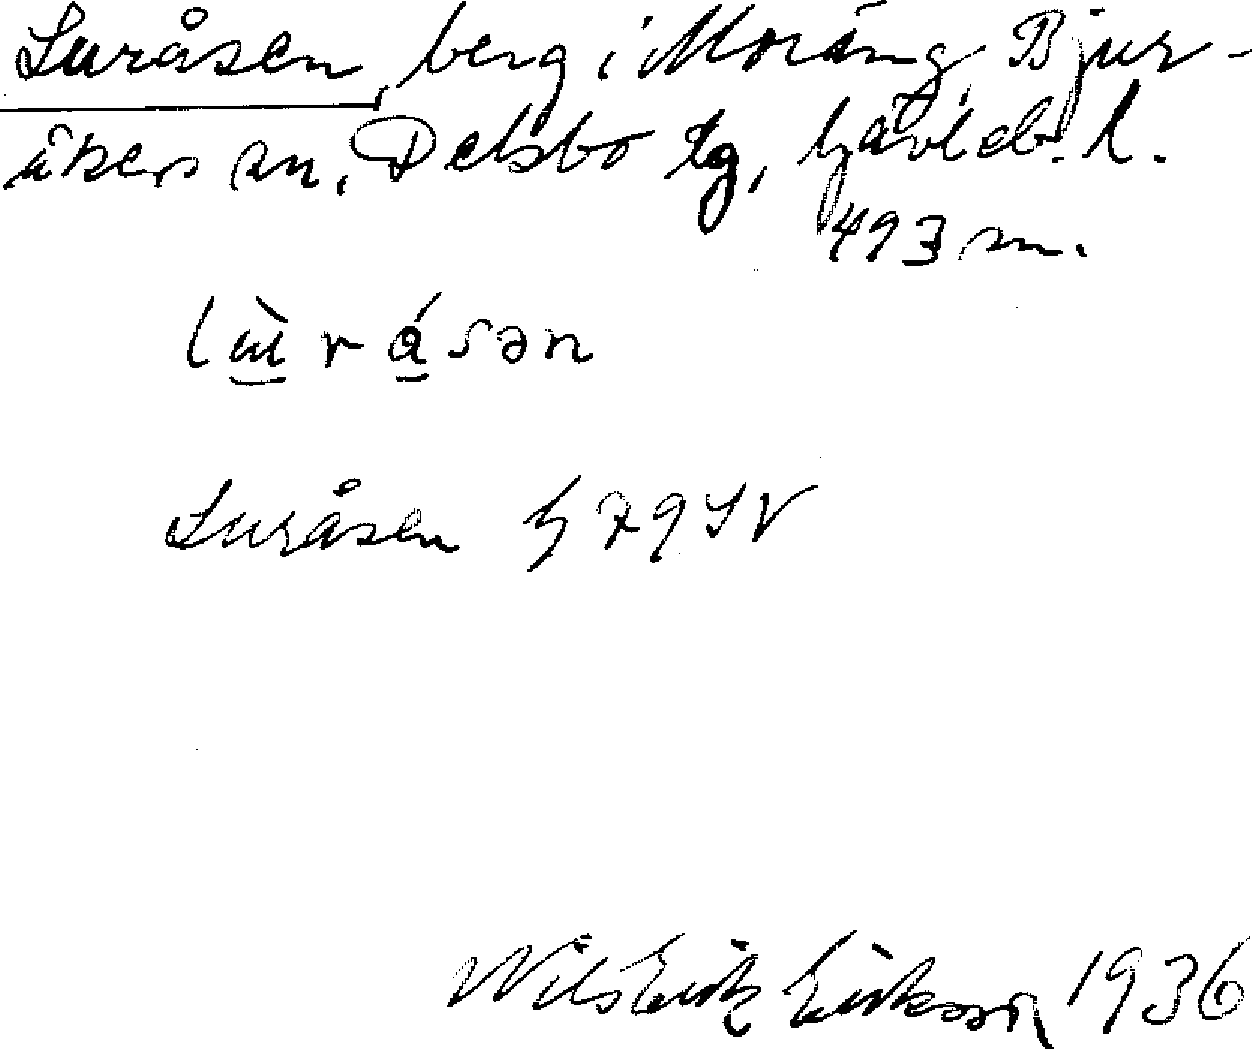 Luråsen, berg i Moräng, Bjur-
åkers sn, Delsbo tg, Gävleb. l.
493 m.
lùråsən
Luråsen G 79 SV
Nils Erik Eriksson 1936